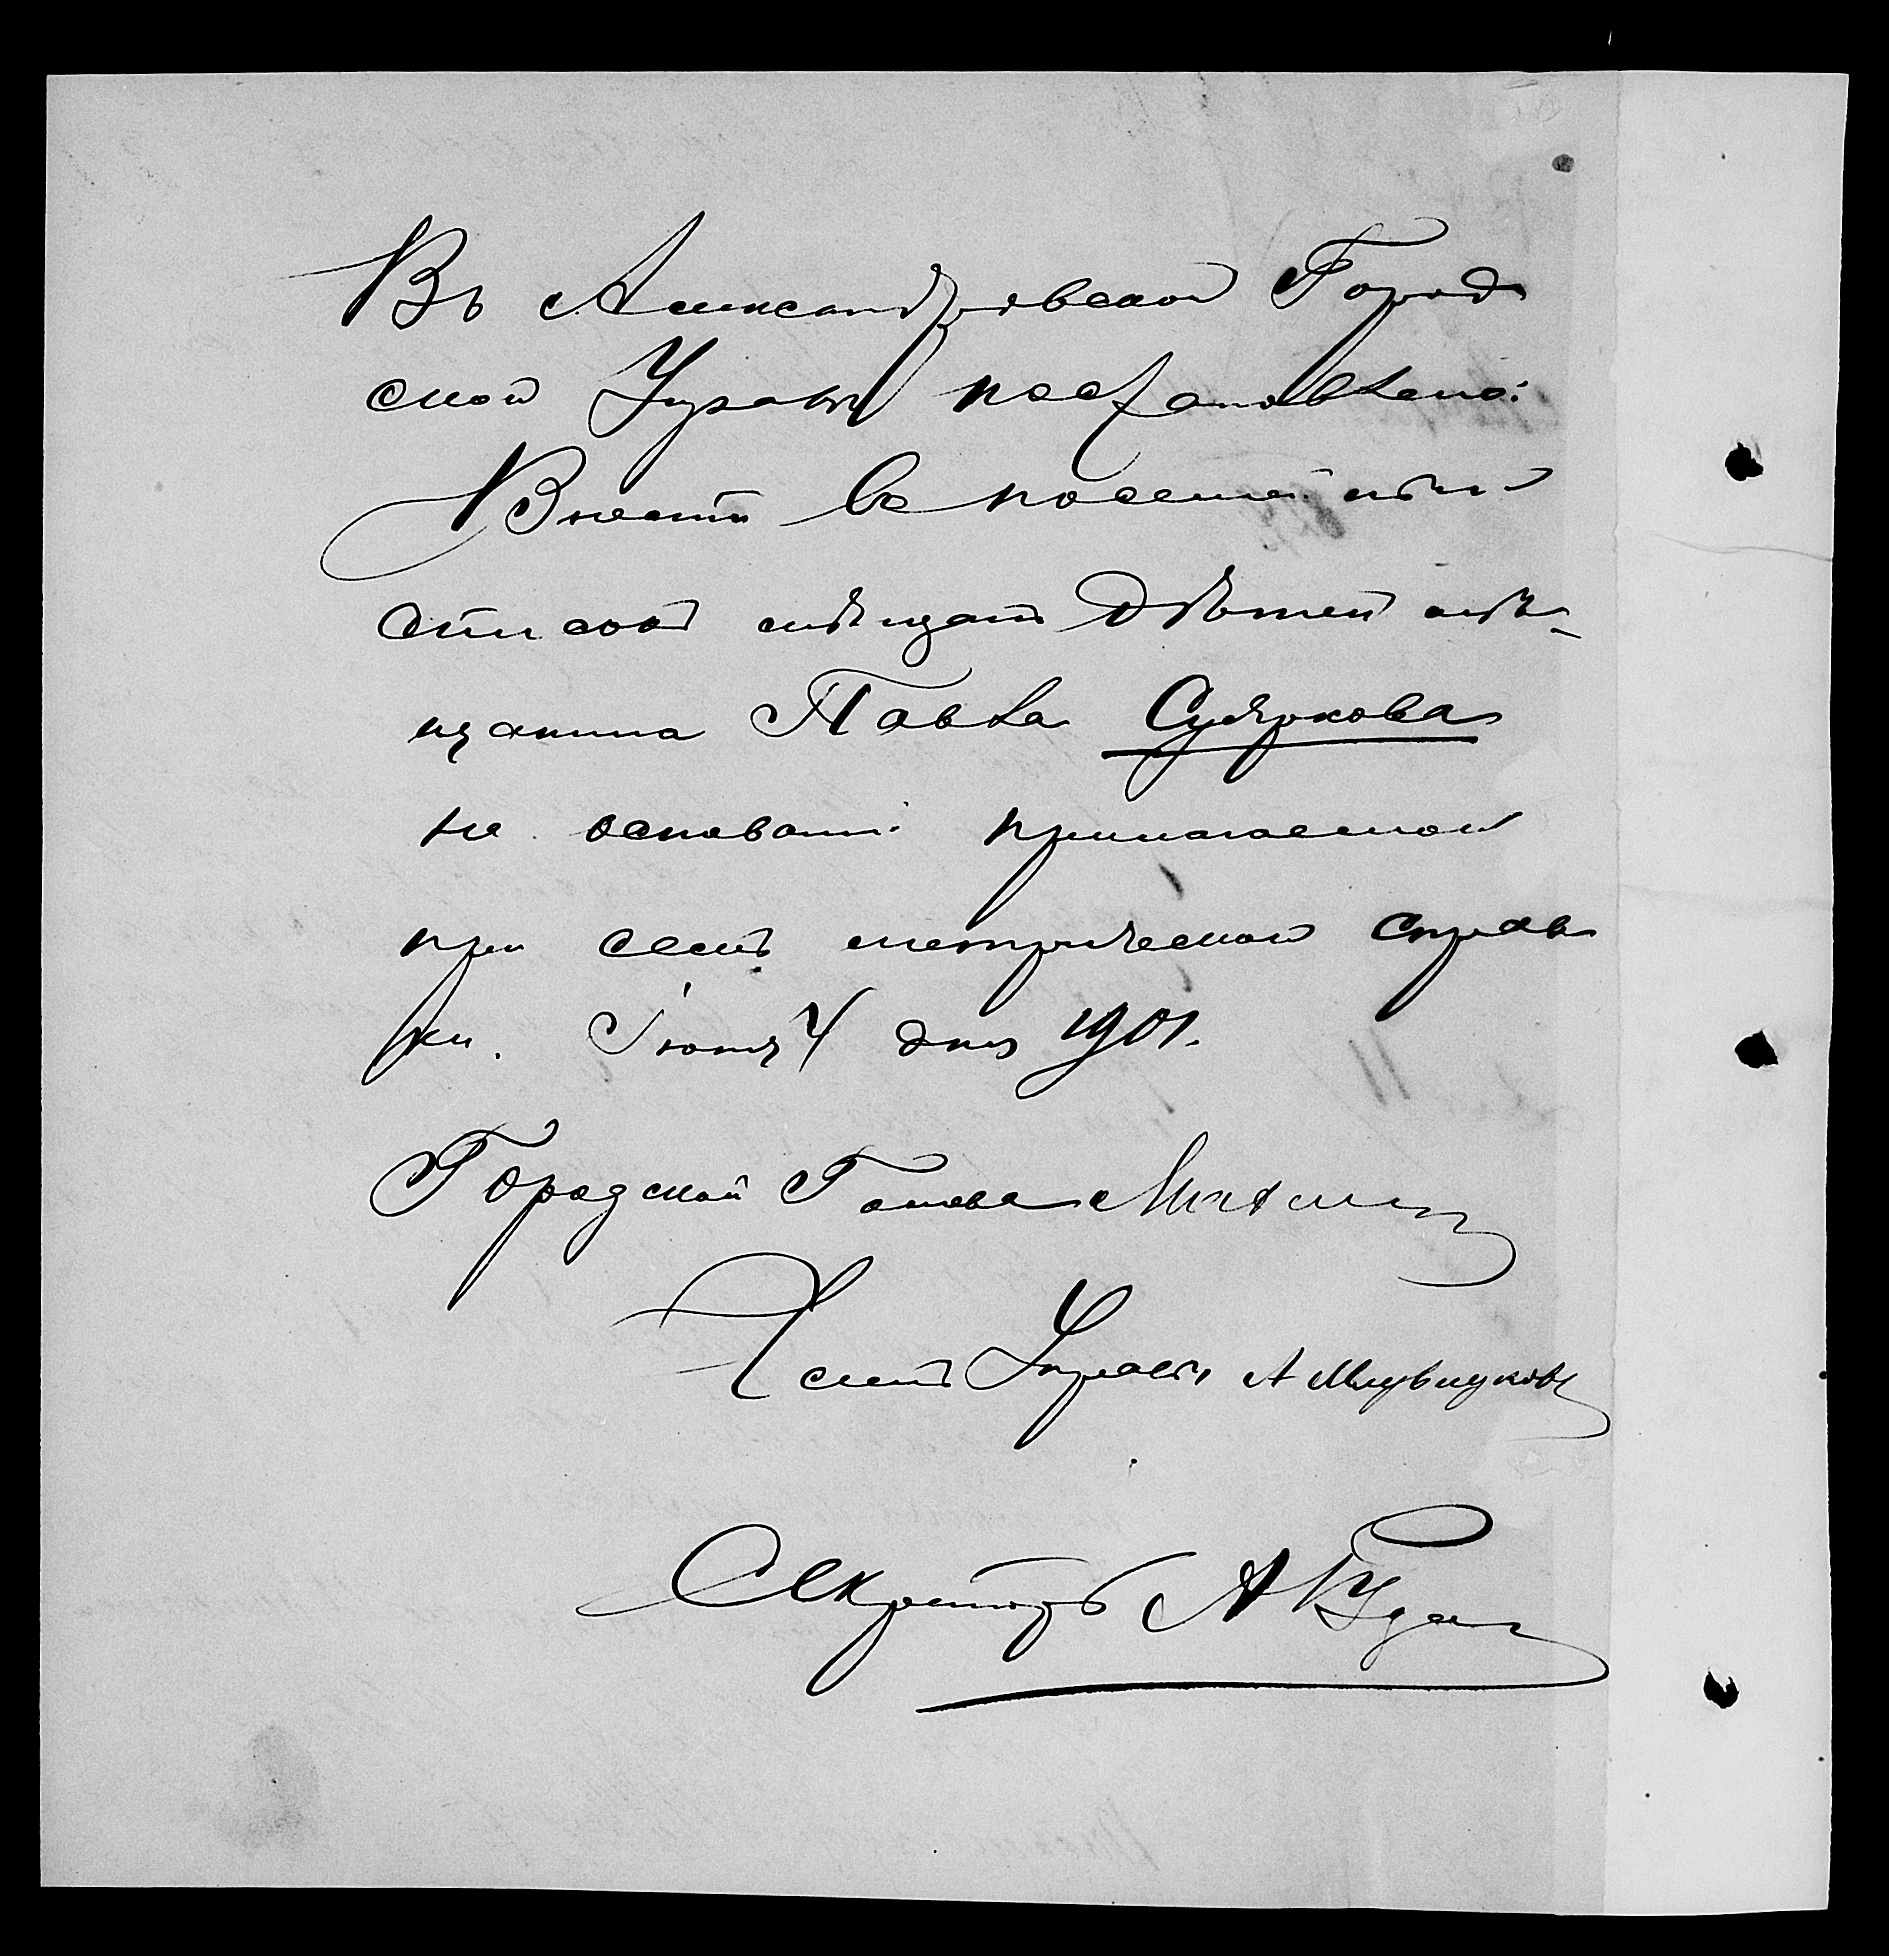 Въ Александровской Город
ской Управѣ постановлено:
Внести въ посемейный
списокъ мѣщанъ дѣтей мѣ-
щанина Павла Сударкова
на основаніи прилагаемой
при семъ метрической справ
ки. Іюня 4 дня 1901.
Городской Голова
Членъ Управы А
Секретарь А